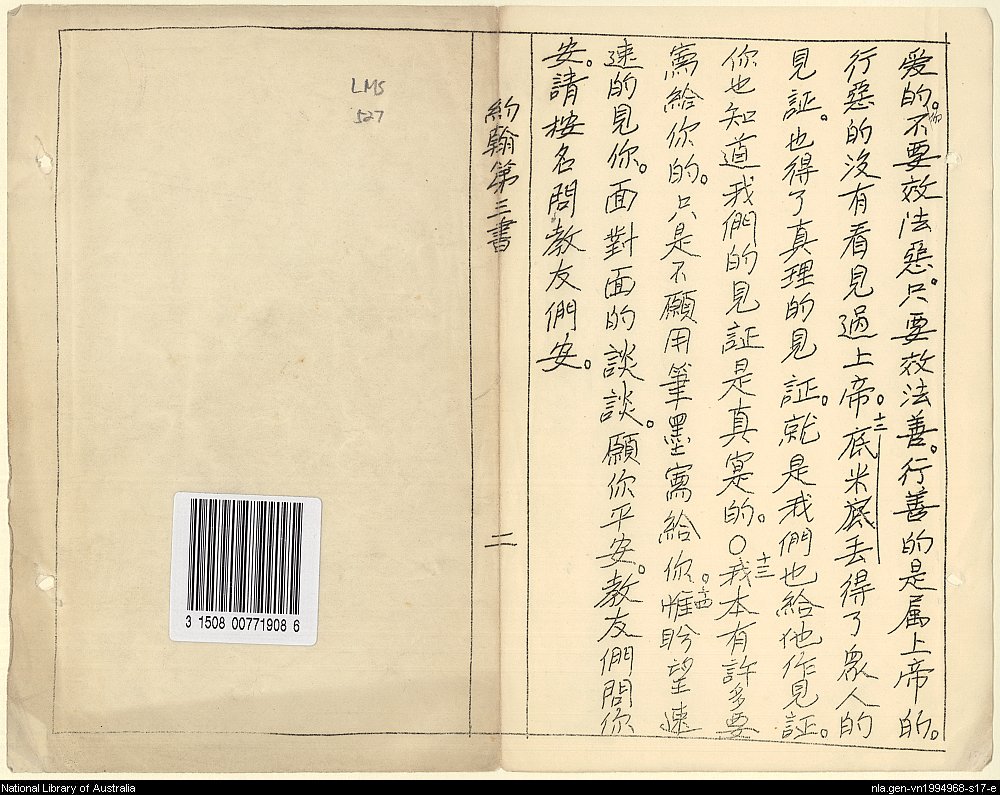 愛的。你不要效法惡。只要效法善。行善的是属上帝的。
行惡的沒有看見過上帝。十二底米底丢得了眾人的
見証。也得了真理的見証。就是我們也給他作見証。
你也知道我們的見証是真寔的。〇十三我本有許多要
寫給你的。只是不願用筆墨寫給你。十四惟盼望速
速的見你。面對面的談談。願你平安。教友們問你
安。請按名問教友們安。
約翰第三書 二
LMS
527
3 1508 00771908 6
National Library of Australia
nla.gen-vn1994968-s17-e